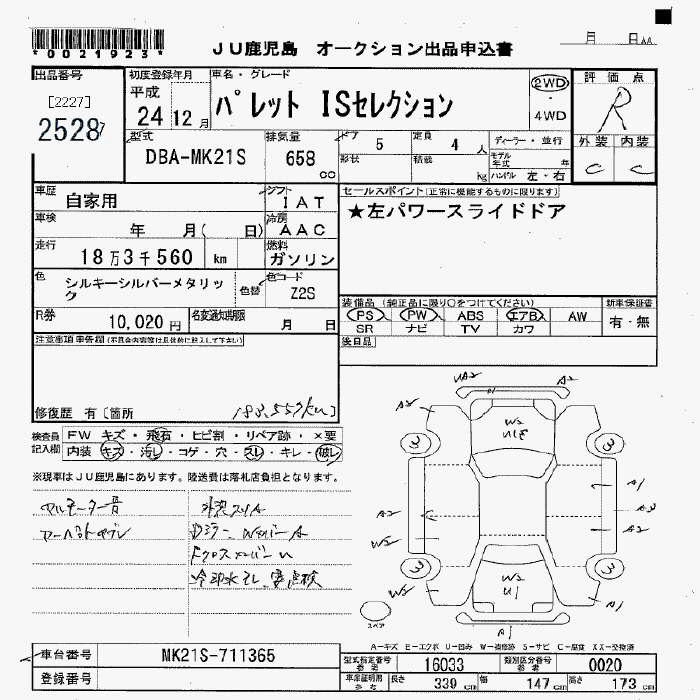 *0021923*
JU鹿児島 オークション出品申込書
月 日
出品番号 初度登録年月 車名・グレード 評価点
[2227] 平成 パレット ISセレクション 2WD・4WD R
25287 24年12月
型式 排気量 ドア 5 定員 4人 ディーラー・並行 外装 内装
DBA-MK21S 658cc 形状 積載 kg モデル年式 年 ハンドル 左・右 C C
車歴 自家用 シフト IAT セールスポイント(正常に機能するものに限ります)
車検 年 月( 日) 冷房 AAC ★左パワースライドドア
走行 18万3千560 km 燃料 ガソリン
色 シルキーシルバーメタリック 色替 色コード Z2S
装備品(純正品に限り○をつけてください) 新車保証書
R券 10,020円 名変通知期限 月 日 PS PW ABS エアB AW 有・無
SR ナビ TV カワ
注意事項申告欄(不具合内容等は具体的に記入して下さい) 後日品
修復歴 有〔箇所 183,559km〕
検査員記入欄 FW キズ・飛石・ヒビ割・リペア跡・×要
内装 キズ・汚レ・コゲ・穴・スレ・キレ・破レ
※現車はJU鹿児島にあります。陸送費は落札店負担となります。
外装スリA
冷却水モレ、要点検
A2 A2
A2 W2
3 3
A1
A2 A3
A2
W2
3 3
W2 W2 A1
U1
A1
スペア
A-キズ E-エクボ U-凹み W-補修跡 S-サビ C-腐食 XX-交換済
車台番号 MK21S-711365
型式指定番号 16033 類別区分番号 0020
登録番号 車庫証明用参考 長さ 339cm 幅 147cm 高さ 173cm